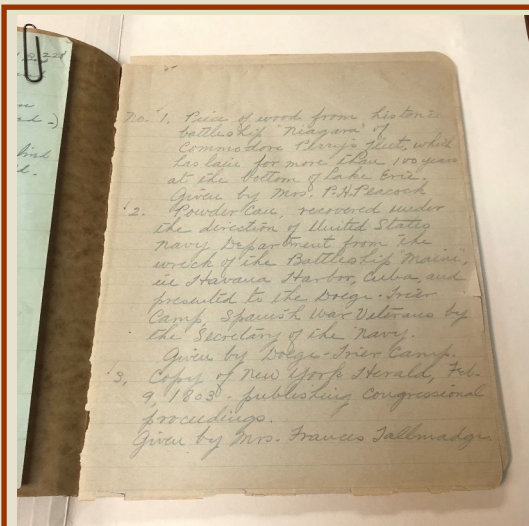 No. 1. Piece of wood from historic
battleship "Niagara" of
Commodore Perry's fleet, which
has lain for more than 100 years
at the bottom of Lake Erie.
Given by Mrs. P.H. Peacock
2. Powder Can, recovered under
the direction of United States
Navy Department from the
wreck of the Battleship "Maine",
in Havana Harbor, Cuba, and
presented to the Doege-Trier
Camp, Spanish War Veterans by
the Secretary of the Navy.
Given by Doege-Trier Camp.
3, Copy of New York Herald, Feb.
9, 1803. publishing congressional
proceedings.
Given by Mrs. Frances Tallmadge